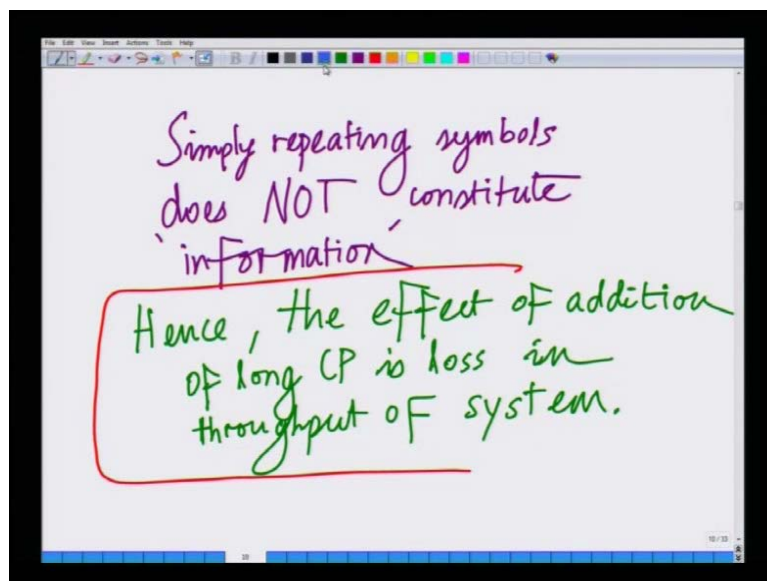 File Edit View Insert Actions Tools Help
B I
Simply repeating symbols
does NOT constitute
'information'
Hence, the effect of addition
of long CP is loss in
throughput of system.
10/33
10